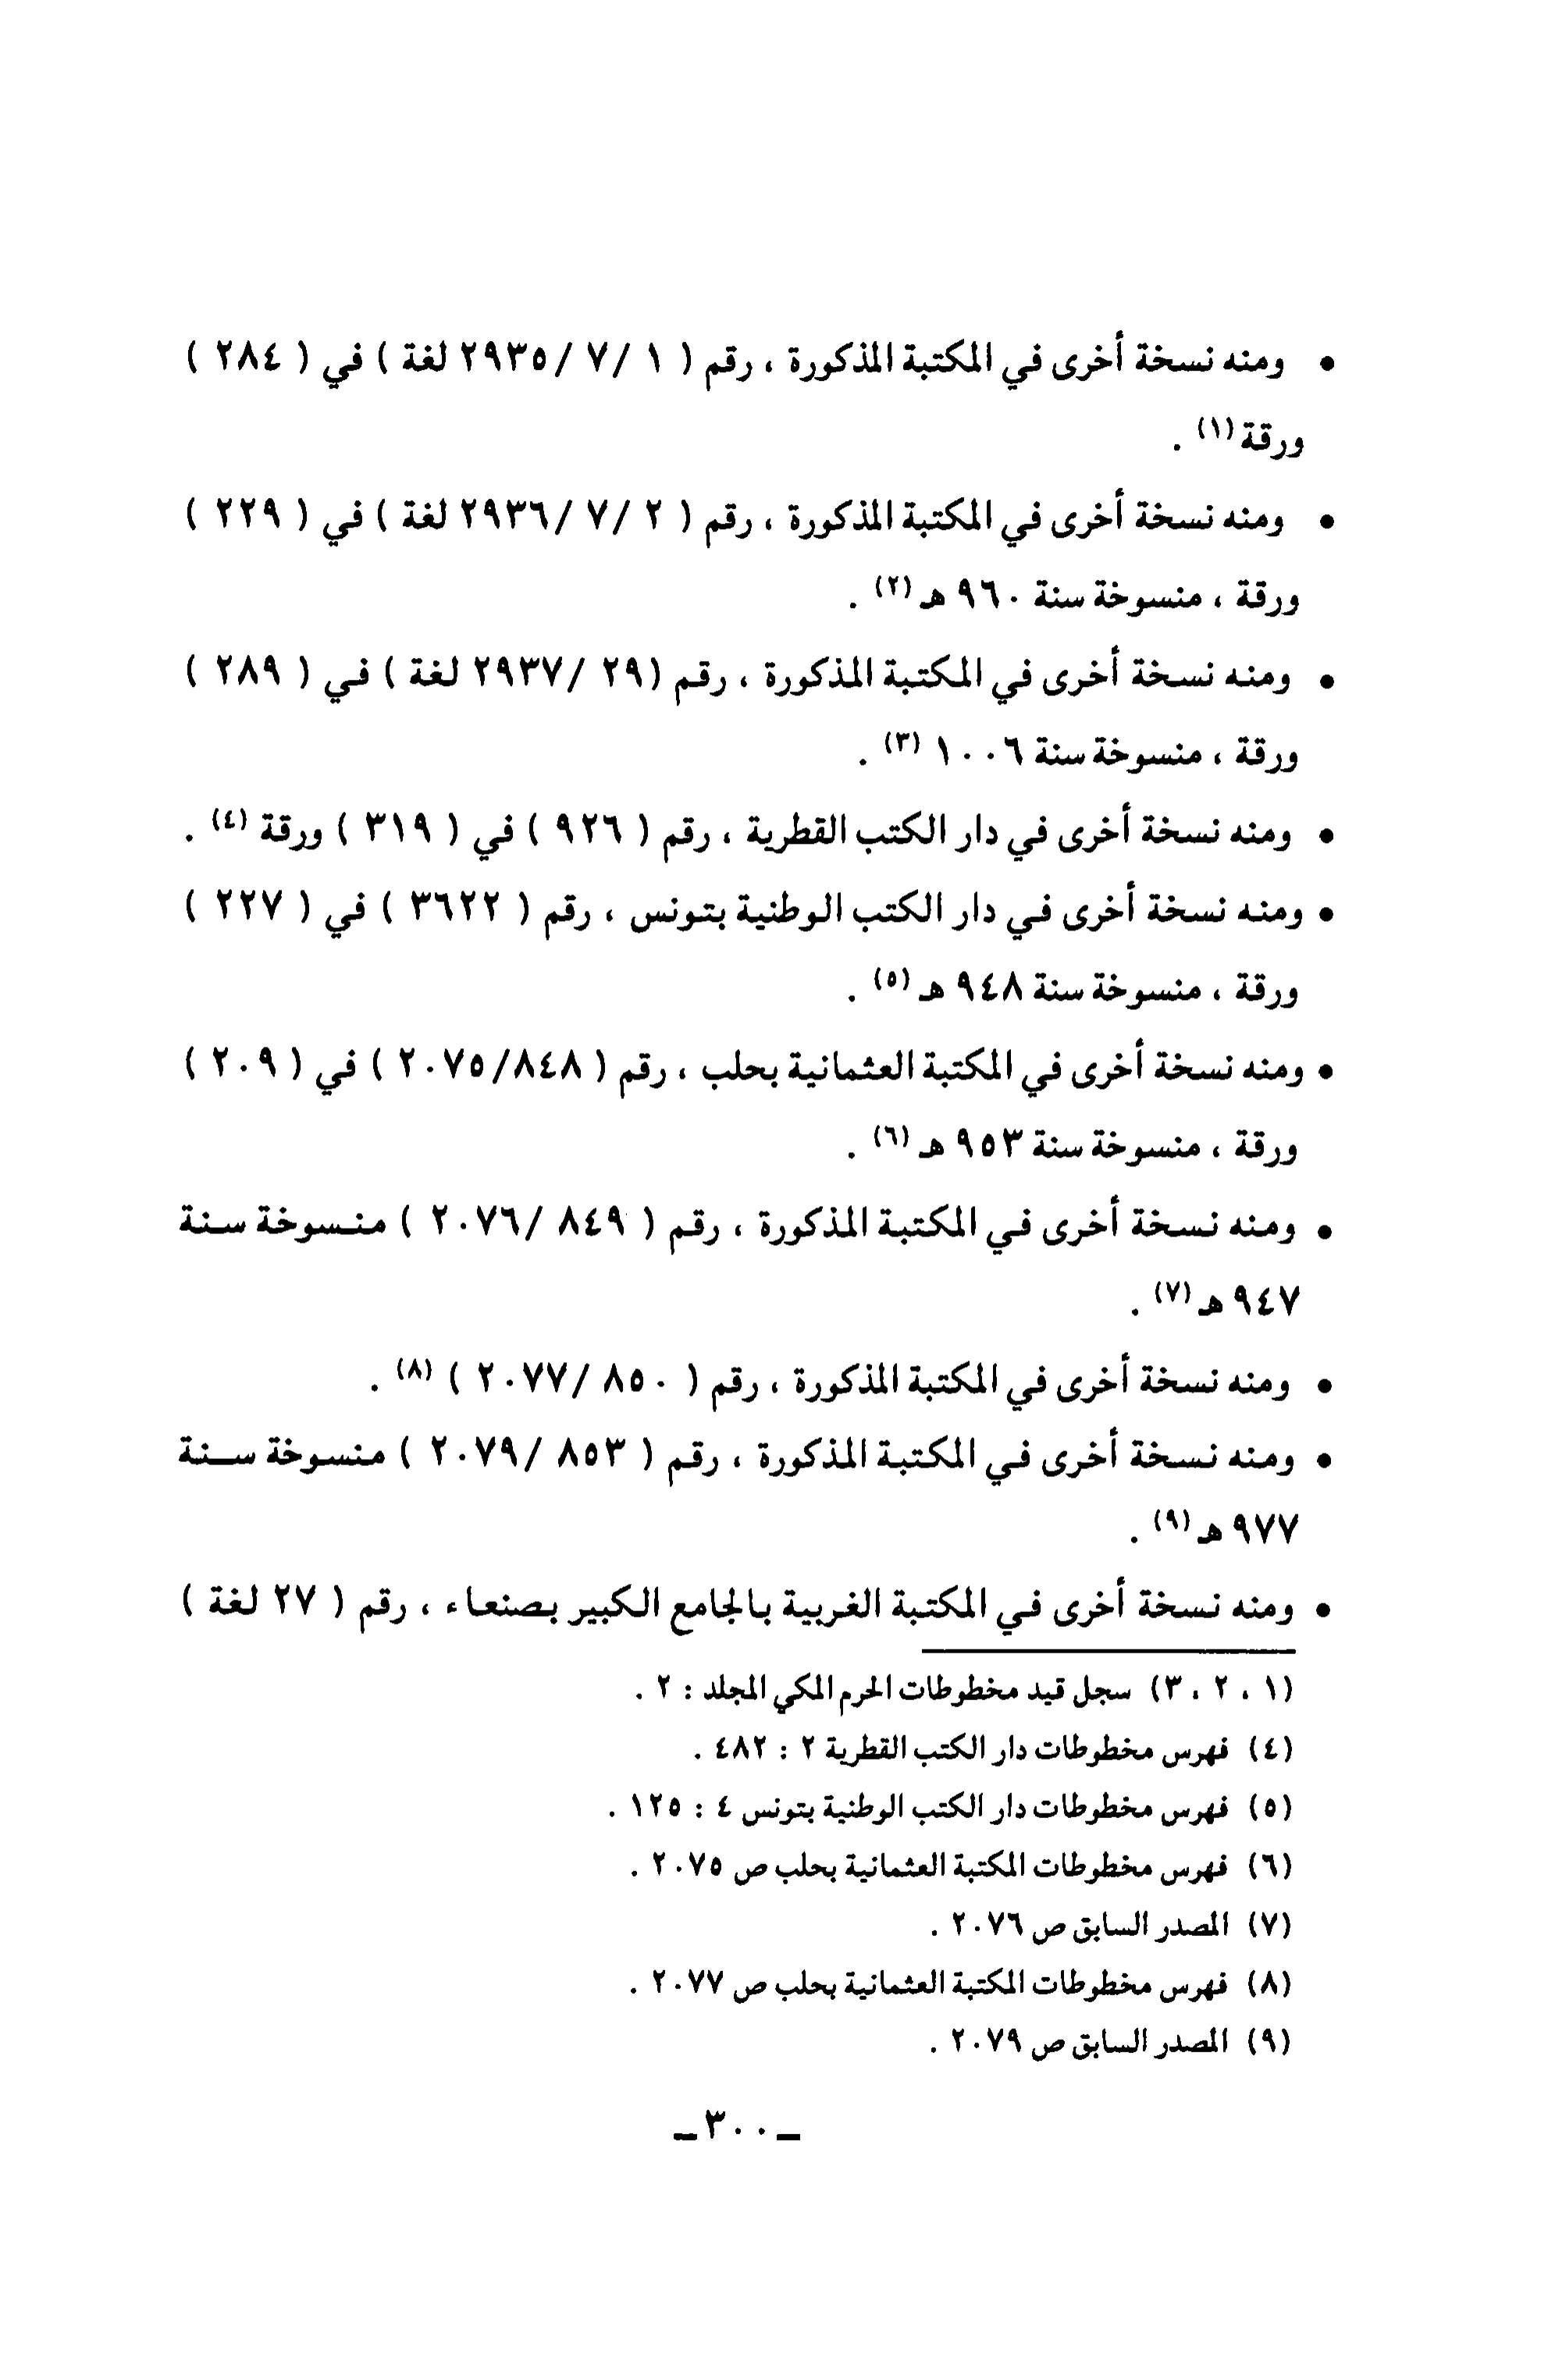 • ومنه نسخة أخرى في المكتبة المذكورة ، رقم ( ١ /٧ /٢٩٣٥ لغة ) في ( ٢٨٤ )
ورقة (١) .
• ومنه نسخة أخرى في المكتبة المذكورة ، رقم ( ٢ /٧ /٢٩٣٦ لغة ) في ( ٢٢٩ )
ورقة ، منسوخة سنة ٩٦٠ هـ (٢) .
• ومنه نسخة أخرى في المكتبة المذكورة ، رقم (٢٩ /٢٩٣٧ لغة ) في ( ٢٨٩ )
ورقة ، منسوخة سنة ١٠٠٦ (٣) .
• ومنه نسخة أخرى في دار الكتب القطرية ، رقم ( ٩٢٦ ) في ( ٣١٩ ) ورقة (٤) .
• ومنه نسخة أخرى في دار الكتب الوطنية بتونس ، رقم ( ٣٦٢٢ ) في ( ٢٢٧ )
ورقة ، منسوخة سنة ٩٤٨ هـ (٥) .
• ومنه نسخة أخرى في المكتبة العثمانية بحلب ، رقم ( ٢٠٧٥/٨٤٨ ) في ( ٢٠٩ )
ورقة ، منسوخة سنة ٩٥٣ هـ (٦) .
• ومنه نسخة أخرى في المكتبة المذكورة ، رقم ( ٨٤٩ /٢٠٧٦ ) منسوخة سنة
٩٤٧ هـ (٧) .
• ومنه نسخة أخرى في المكتبة المذكورة ، رقم ( ٨٥٠ /٢٠٧٧ ) (٨) .
• ومنه نسخة أخرى في المكتبة المذكورة ، رقم ( ٨٥٣ /٢٠٧٩ ) منسوخة سنة
٩٧٧ هـ (٩) .
• ومنه نسخة أخرى في المكتبة الغربية بالجامع الكبير بصنعاء ، رقم ( ٢٧ لغة )
(١ ، ٢ ، ٣) سجل قيد مخطوطات الحرم المكي المجلد : ٢ .
(٤) فهرس مخطوطات دار الكتب القطرية ٢ : ٤٨٢ .
(٥) فهرس مخطوطات دار الكتب الوطنية بتونس ٤ : ١٢٥ .
(٦) فهرس مخطوطات المكتبة العثمانية بحلب ص ٢٠٧٥ .
(٧) المصدر السابق ص ٢٠٧٦ .
(٨) فهرس مخطوطات المكتبة العثمانية بحلب ص ٢٠٧٧ .
(٩) المصدر السابق ص ٢٠٧٩ .
ـ ٣٠٠ ـ